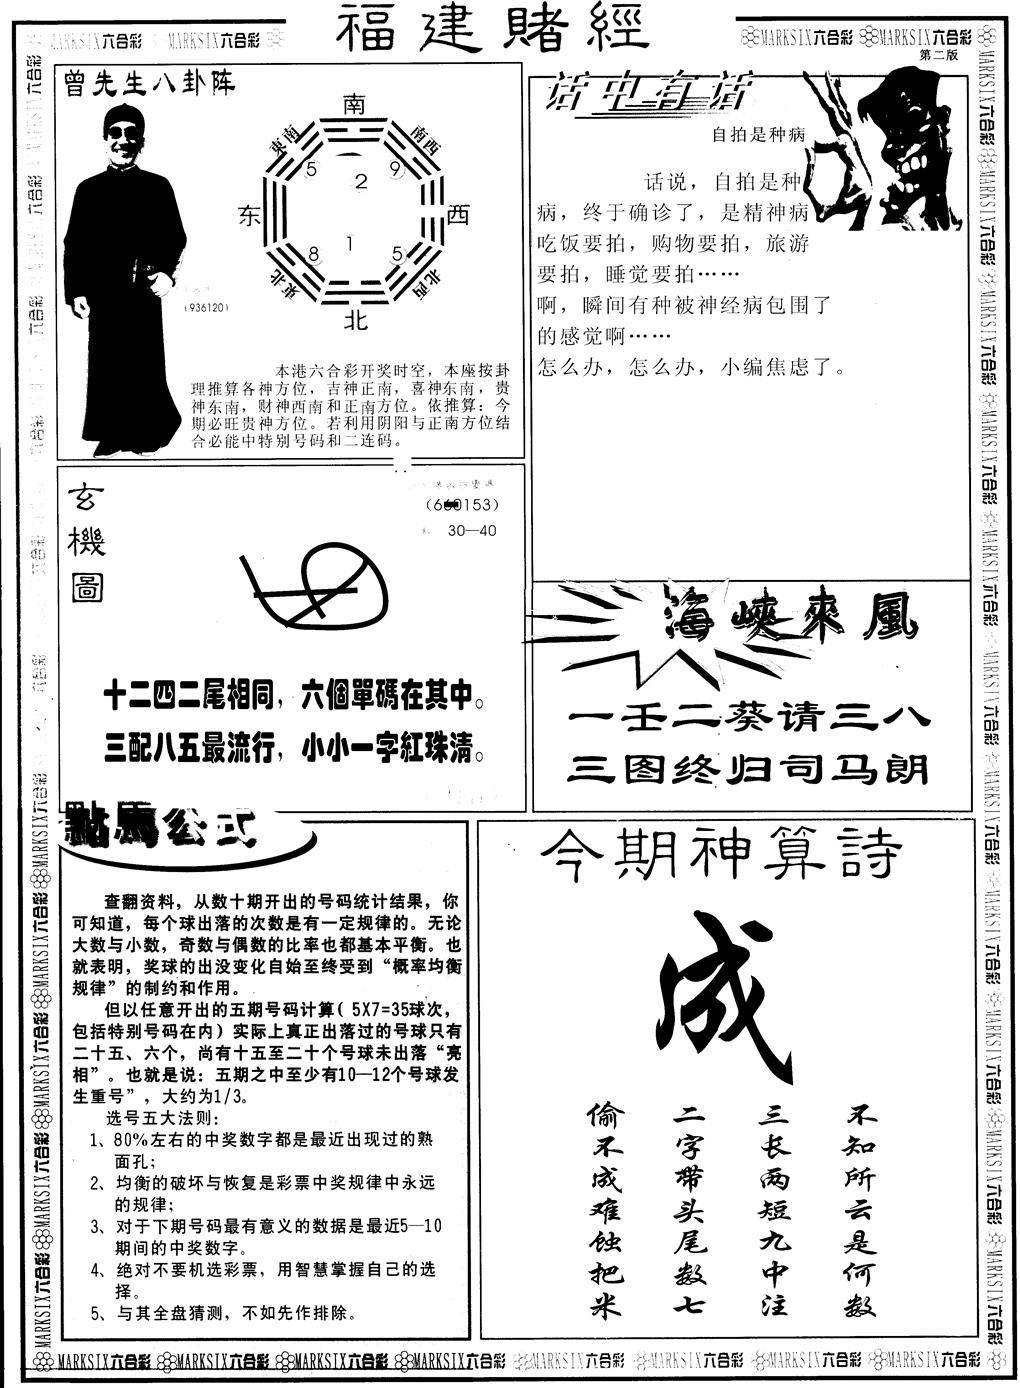 福建賭經
MARKSIX六合彩 MARKSIX六合彩
MARKSIX六合彩 MARKSIX六合彩
第二版
曾先生八卦阵
南
東南
南西
5
9
2
东
西
8
1
5
東北
北西
北
(936120)
本港六合彩开奖时空，本座按卦
理推算各神方位，吉神正南，喜神东南，贵
神东南，财神西南和正南方位。依推算：今
期必旺贵神方位。若利用阴阳与正南方位结
合必能中特别号码和二连码。
话中有话
自拍是种病
话说，自拍是种
病，终于确诊了，是精神病
吃饭要拍，购物要拍，旅游
要拍，睡觉要拍……
啊，瞬间有种被神经病包围了
的感觉啊……
怎么办，怎么办，小编焦虑了。
玄機圖
30—40
十二四二尾相同，六個單碼在其中。
三配八五最流行，小小一字紅珠清。
海峽來風
一壬二葵请三八
三图终归司马朗
點馬公式
查翻资料，从数十期开出的号码统计结果，你
可知道，每个球出落的次数是有一定规律的。无论
大数与小数，奇数与偶数的比率也都基本平衡。也
就表明，奖球的出没变化自始至终受到“概率均衡
规律”的制约和作用。
但以任意开出的五期号码计算（5X7=35球次，
包括特别号码在内）实际上真正出落过的号球只有
二十五、六个，尚有十五至二十个号球未出落“亮
相”。也就是说：五期之中至少有10—12个号球发
生重号”，大约为1/3。
选号五大法则：
1、80%左右的中奖数字都是最近出现过的熟
面孔；
2、均衡的破坏与恢复是彩票中奖规律中永远
的规律；
3、对于下期号码最有意义的数据是最近5—10
期间的中奖数字。
4、绝对不要机选彩票，用智慧掌握自己的选
择。
5、与其全盘猜测，不如先作排除。
今期神算詩
成
不知所云是何数
三长两短九中注
二字带头尾数七
偷不成难蚀把米
MARKSIX六合彩 MARKSIX六合彩 MARKSIX六合彩 MARKSIX六合彩 MARKSIX六合彩 MARKSIX六合彩 MARKSIX六合彩 MARKSIX六合彩